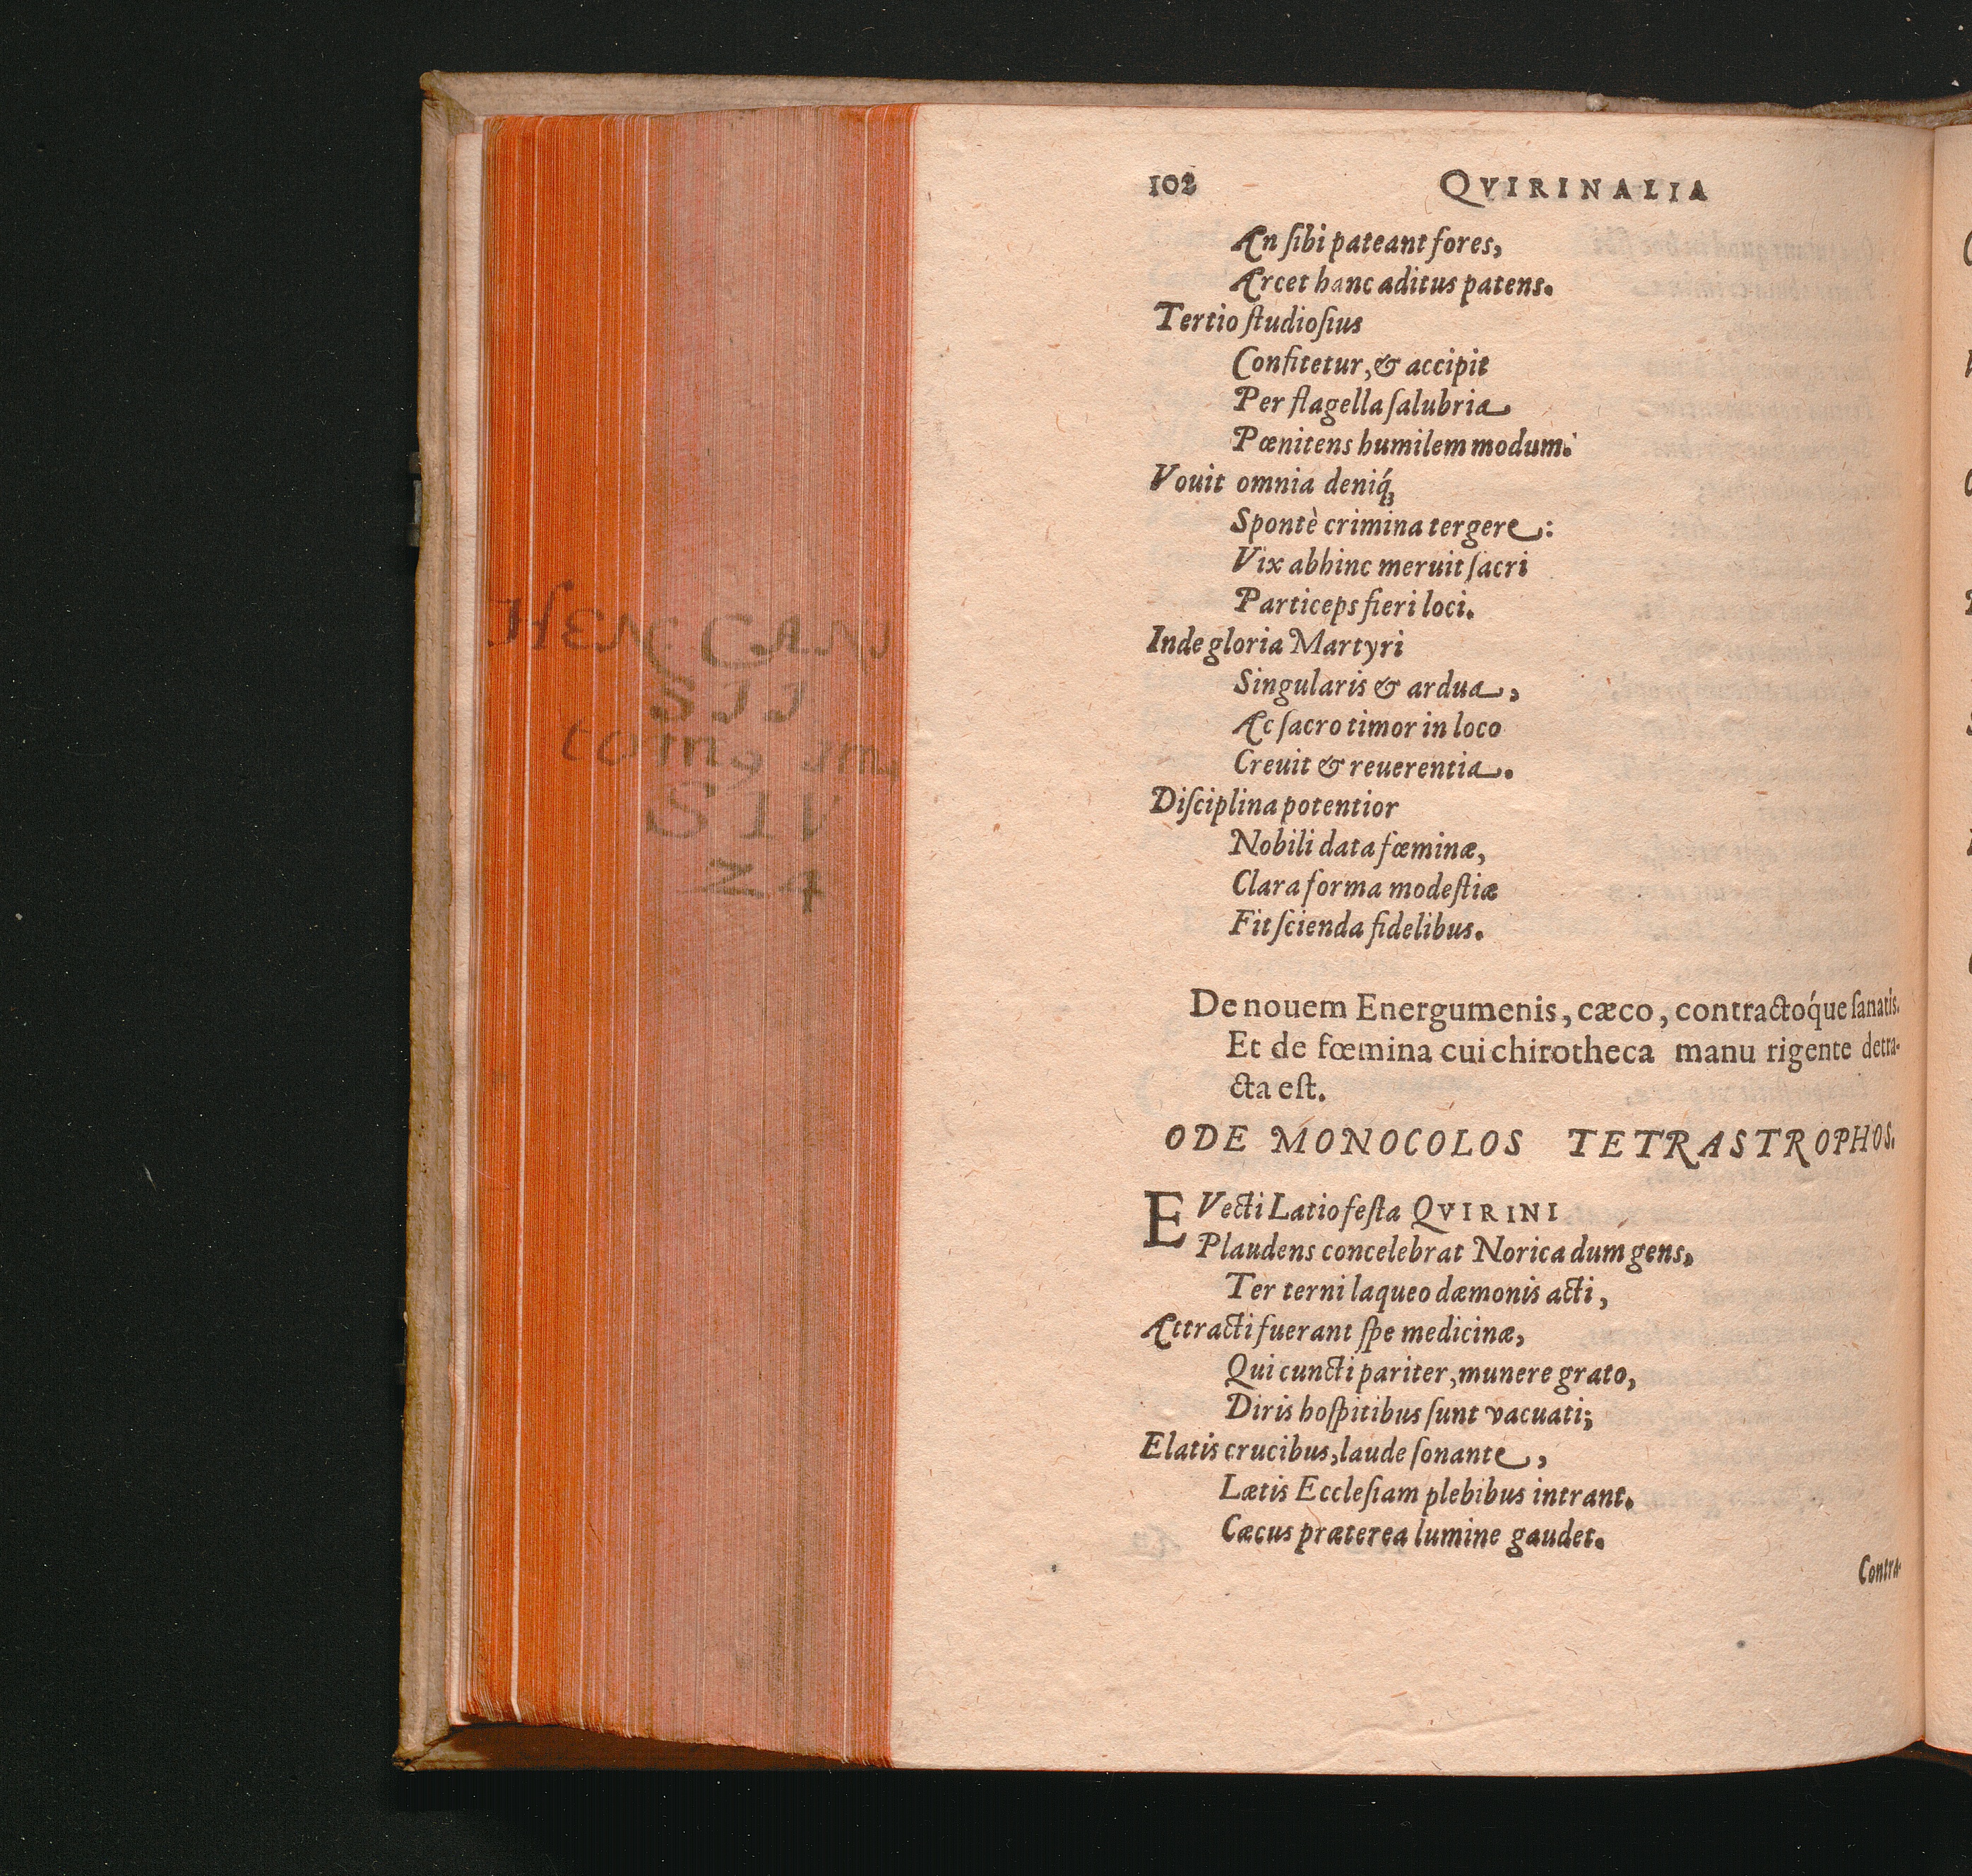 102 QVIRINALIA
An ſibi pateant fores,
Arcet hanc aditus patens.
Tertio ſtudioſius
Confitetur, & accipit
Per flagella ſalubria
Pœnitens humilem modum.
Vouit omnia deniq́;
Spontè crimina tergere:
Vix abhinc meruit ſacri
Particeps fieri loci.
Inde gloria Martyri
Singularis & ardua,
Ac ſacro timor in loco
Creuit & reuerentia.
Diſciplina potentior
Nobili data fœminæ,
Clara forma modeſtiæ
Fit ſcienda fidelibus.
De nouem Energumenis, cæco, contractoq́ue ſanatis.
Et de fœmina cui chirotheca manu rigente detra-
cta eſt.
ODE MONOCOLOS TETRASTROPHOS.
EVecti Latio feſta QVIRINI
Plaudens concelebrat Norica dum gens,
Ter terni laqueo dæmonis acti,
Attracti fuerant ſpe medicinæ,
Qui cuncti pariter, munere grato,
Diris hoſpitibus ſunt vacuati;
Elatis crucibus, laude ſonante,
Lætis Eccleſiam plebibus intrant.
Cæcus præterea lumine gaudet.
Contra-